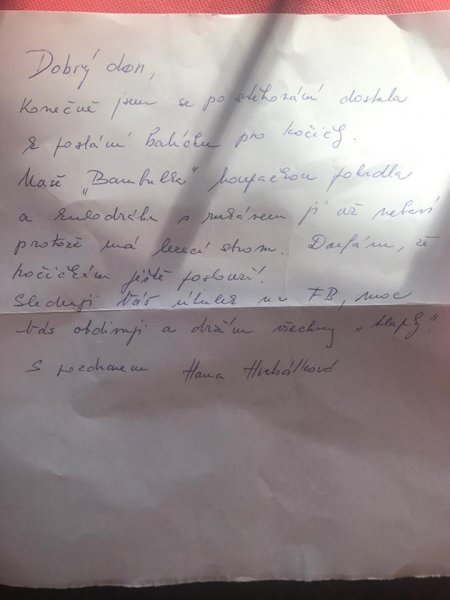 Dobrý den,
Konečně jsem se po stěhování dostala
k poslání balíčku pro kočičky.
Naše "Bambulka" houpačkou pohrdla
a kulodráhu s ji už nebaví
protože má lezecí strom. Doufám, že
kočičkám ještě poslouží.
Sleduji Váš útulek na FB, moc
Vás obdivuji a držím všechny "tlapky".
S pozdravem Hana